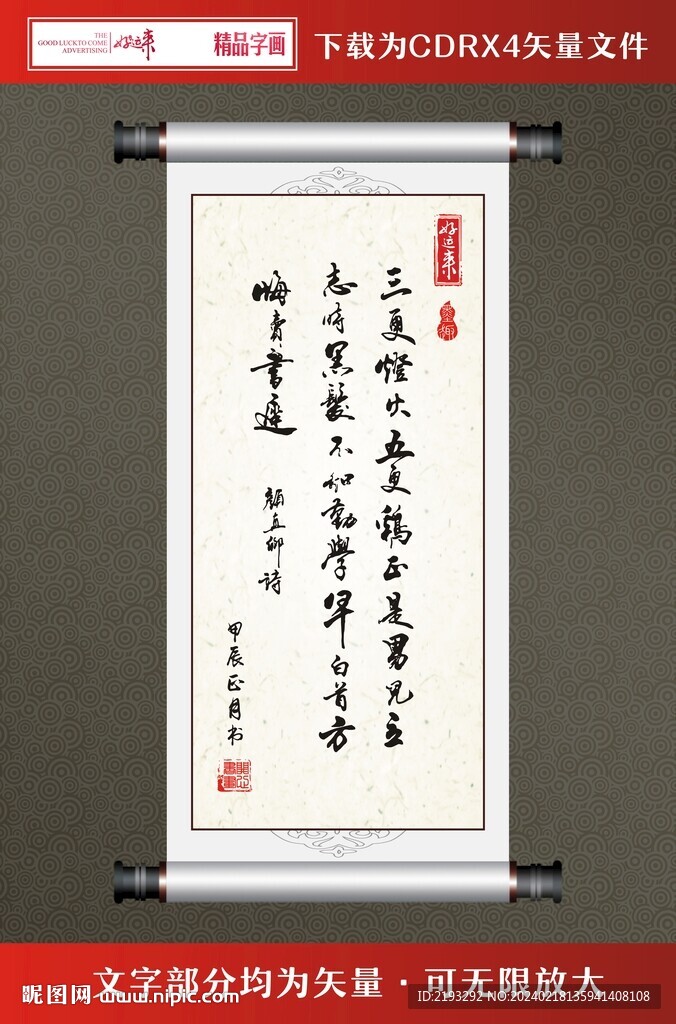 THE
GOOD LUCK TO COME
ADVERTISING
好运来
精品字画
下载为CDRX4矢量文件
好运来
三更燈火五更鷄正是男兒立
志時黑髮不知勤學早白首方
悔賣書遲
顏真卿詩
甲辰正月书
文字部分均为矢量·可无限放大
昵图网 www.nipic.com
ID:2193292 NO:20240218135941408108